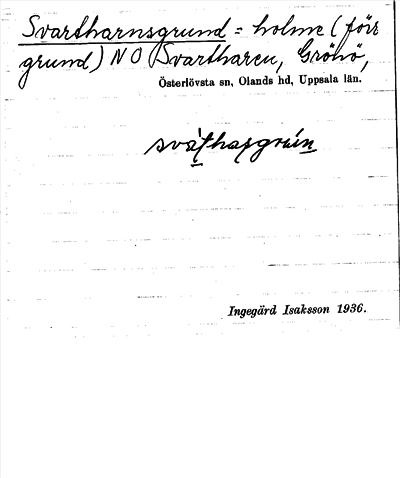 Svartharnsgrund = holme (förr
grund) NO Svartharen, Gröhö,
Österlövsta sn, Olands hd, Uppsala län.
Ingegärd Isaksson 1936.